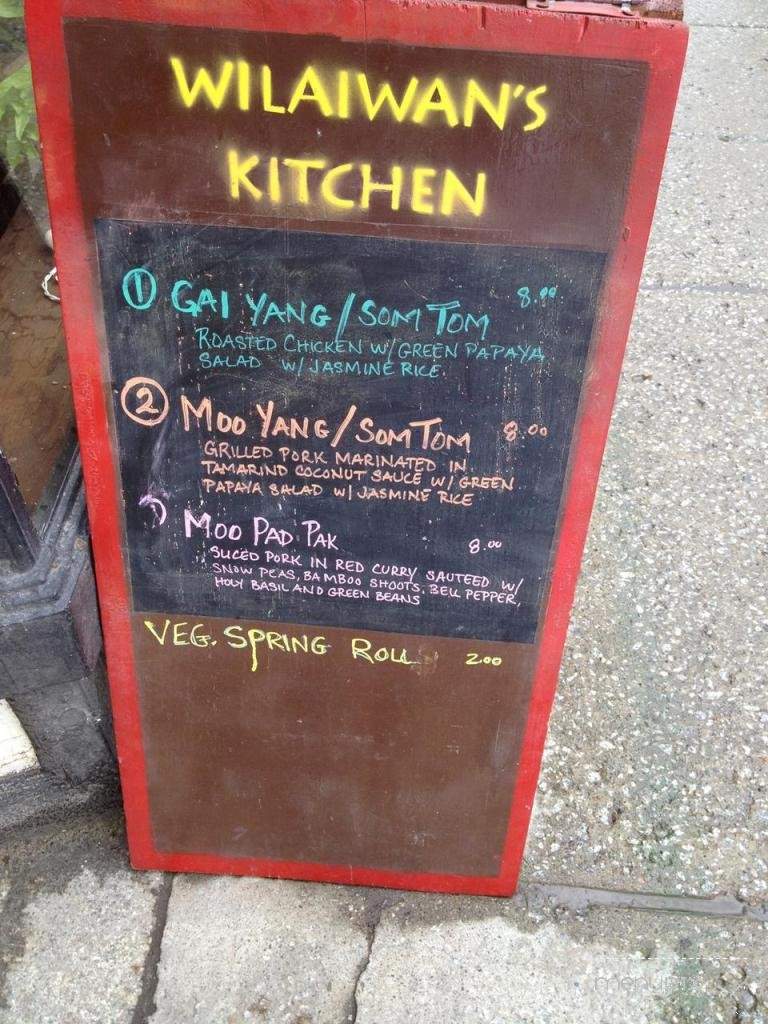 WILAIWAN'S
KITCHEN
1 GAI YANG/SOM TOM 8.00
ROASTED CHICKEN W/GREEN PAPAYA
SALAD W/JASMINE RICE
2 MOO YANG/SOM TOM 8.00
GRILLED PORK MARINATED IN
TAMARIND COCONUT SAUCE W/ GREEN
PAPAYA SALAD W/ JASMINE RICE
MOO PAD PAK 8.00
SLICED PORK IN RED CURRY SAUTEED W/
SNOW PEAS, BAMBOO SHOOTS, BELL PEPPER,
HOLY BASIL AND GREEN BEANS
VEG. SPRING ROLL 2.00